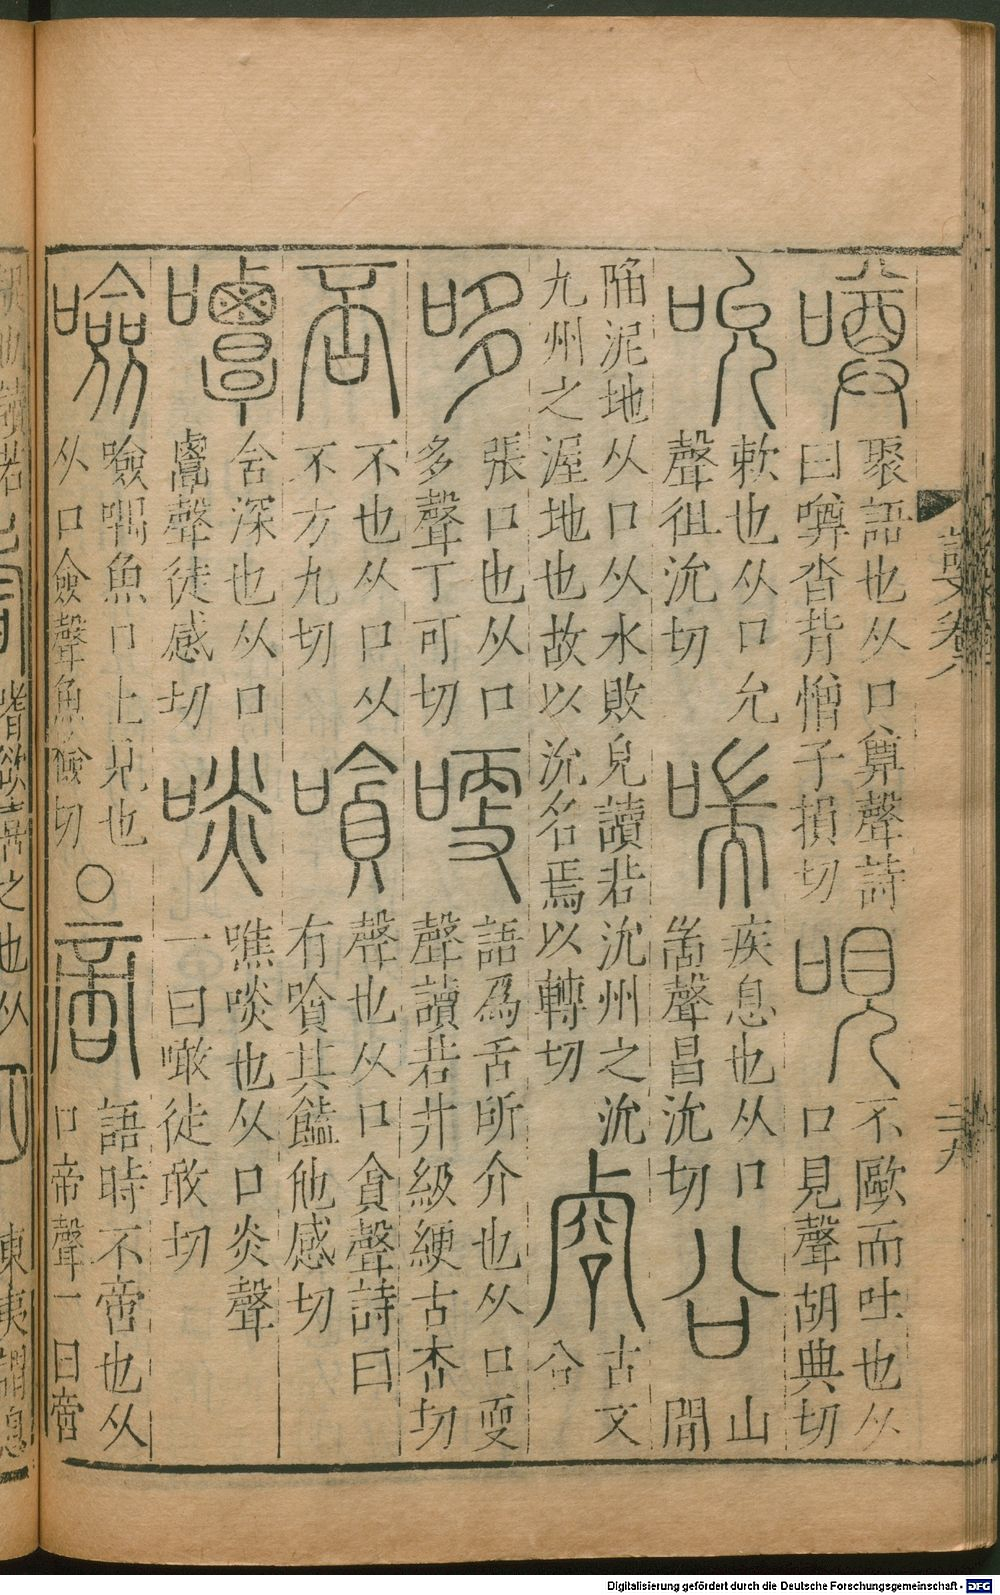 噂 聚語也从口尊聲詩
曰噂沓背憎子損切
哯 不歐而吐也从
口見聲胡典切
吮 欶也从口允
聲徂沇切
喘 疾息也从口
耑聲昌沇切
㕣 山
間
陷泥地从口从水敗皃讀若沇州之沇
九州之渥地也故以沇名焉以轉切
古文
㕣
哆 張口也从口
多聲丁可切
哽 語爲舌所介也从口㪅
聲讀若井級綆古杏切
否 不也从口从
不方九切
嗿 聲也从口貪聲詩曰
有嗿其饁他感切
嘾 含深也从口
覃聲徒感切
啖 噍啖也从口炎聲
一曰噉徒敢切
噞 噞喁魚口上見也
从口僉聲魚儉切
○
啻 語時不啻也从
口帝聲一曰啻
二九
東夷謂息
Digitalisierung gefördert durch die Deutsche Forschungsgemeinschaft - DFG